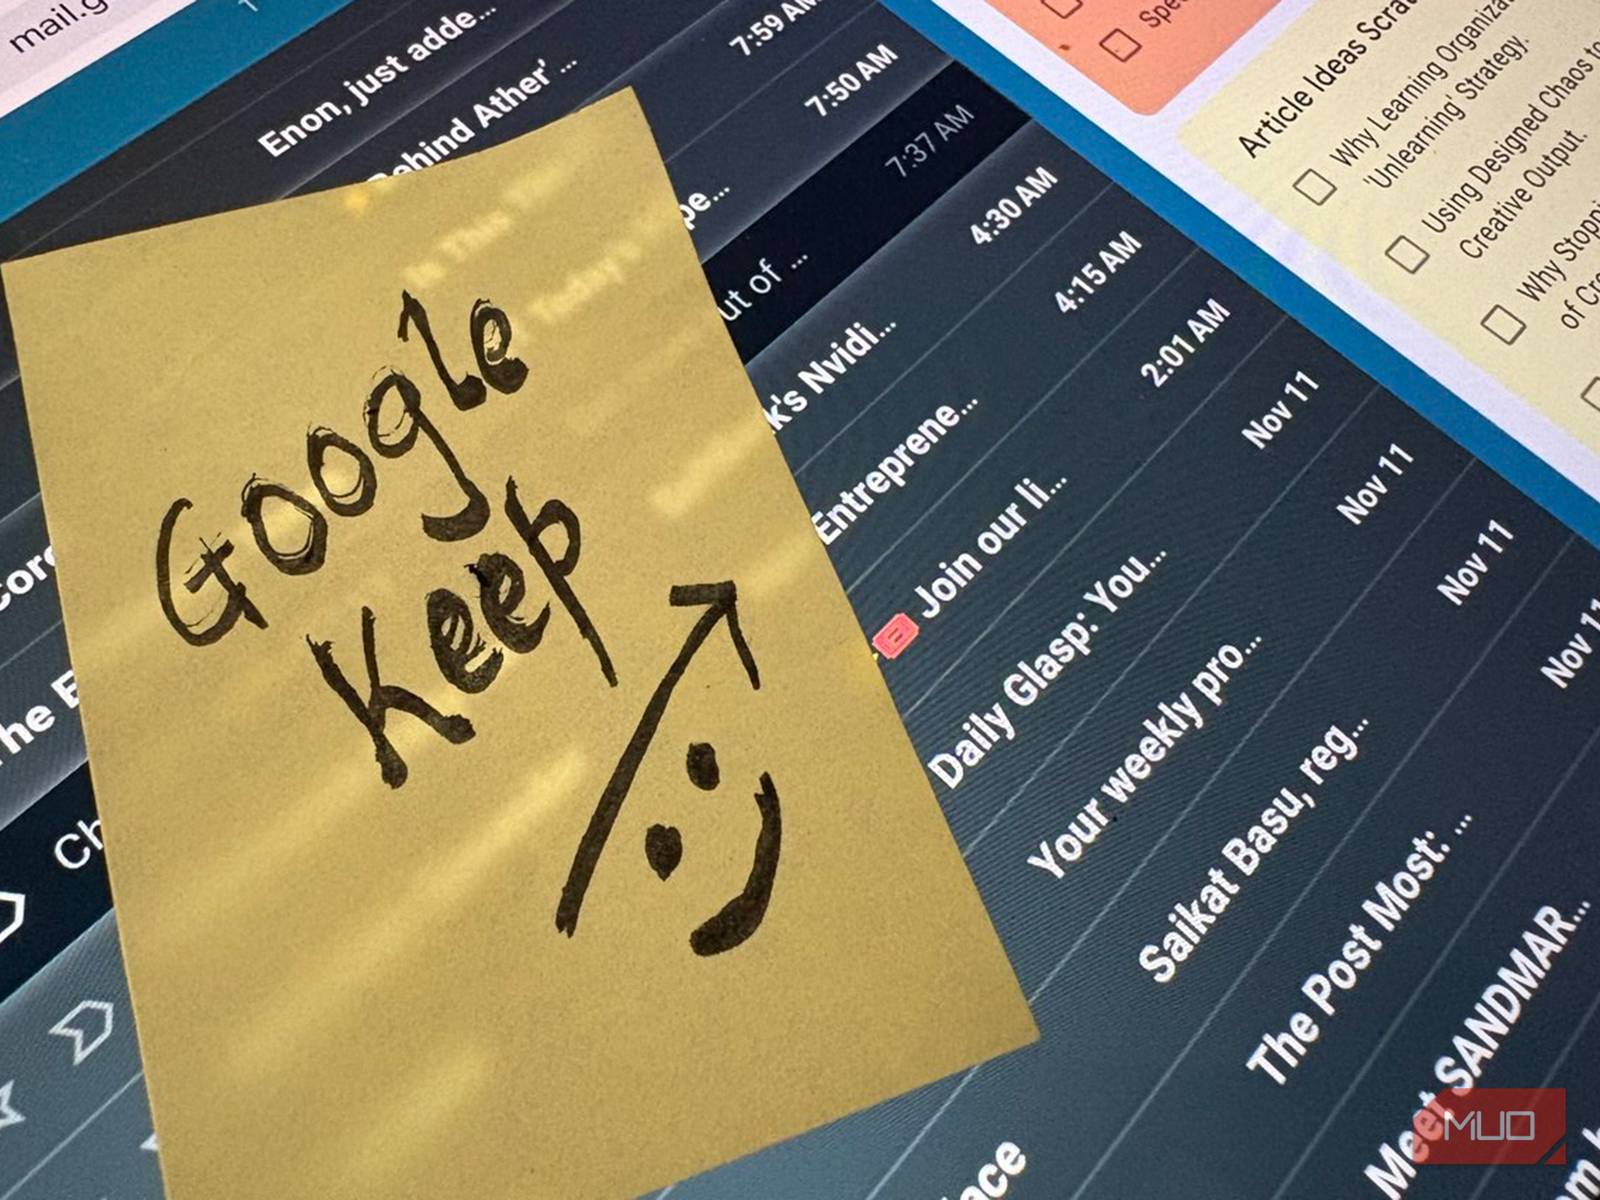 mail.g
Enon, just adde...
Behind Ather' ...
7:59 AM
pe...
7:50 AM
ut of ...
7:37 AM
k's Nvidi...
4:30 AM
Entreprene...
4:15 AM
Join our li...
2:01 AM
Daily Glasp: You...
Nov 11
Your weekly pro...
Nov 11
Saikat Basu, reg...
Nov 11
The Post Most: ...
Nov 11
Meet SANDMAR...
Google
Keep
Core
The E
Ch
Spe
Article Ideas Scrat
Why Learning Organizat
'Unlearning' Strategy.
Using Designed Chaos to
Creative Output.
Why Stoppi
of Cre
MUO